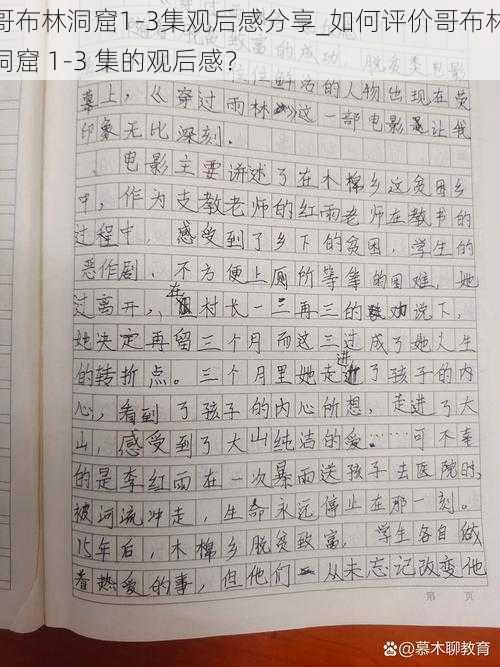 哥布林洞窟1-3集观后感分享_如何评价哥布林
洞窟 1-3 集的观后感?
致富的成功，脱贫类电影
位鲜活的人物出现在荧
幕上，《穿过雨林》这一部电影是让我
印象无比深刻。
电影主要讲述了在木棉乡这贫困乡
中，作为支教老师的红雨老师在教书的
过程中，感受到了乡下的贫困，学生的
恶作剧，不方便上厕所等等的困难，她
过离开，在村长一二再三的劝说下，
她决定再留三个月而这三过成了她人生
的转折点。三个月里她走进了孩子的内
心，看到了孩子的内心所想，走进了大
山，感受到了大山纯洁的爱……可不幸
的是李红雨在一次暴雨送孩子去医院时，
被河流冲走，生命永远停止在那一刻。
15年后，木棉乡脱贫致富，学生各自做
着热爱的事，但他们从未忘记改变他
第 页
慕木聊教育